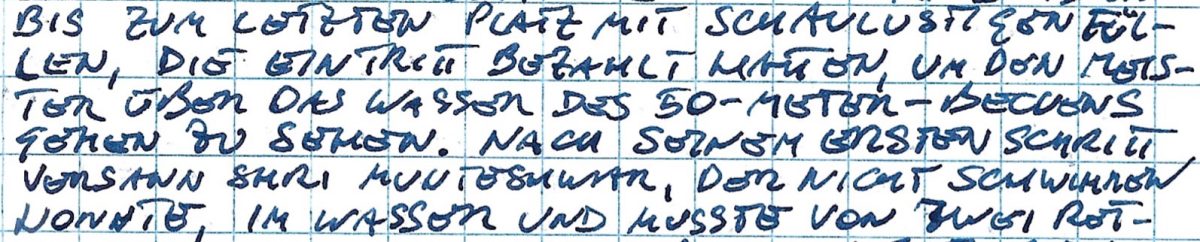 BIS ZUM LETZTEN PLATZ MIT SCHAULUSTIGEN FÜL-
LEN, DIE EINTRITT BEZAHLT HATTEN, UM DEN MEIS-
TER ÜBER DAS WASSER DES 50-METER-BECKENS
GEHEN ZU SEHEN. NACH SEINEM ERSTEN SCHRITT
VERSANN SHRI MUKTESHWAR, DER NICHT SCHWIMMEN
KONNTE, IM WASSER UND MUSSTE VON ZWEI RET-